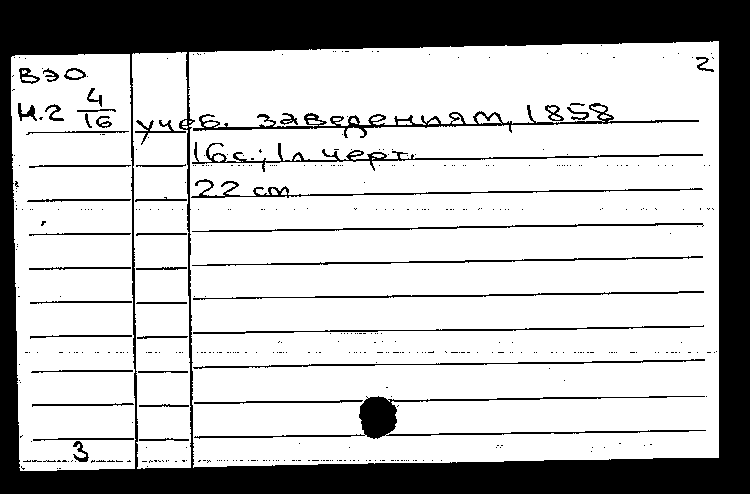 ВЭО 2
И.2 4/16 учеб. заведениям, 1858
16 с.; 1 л. черт.
22 см
3